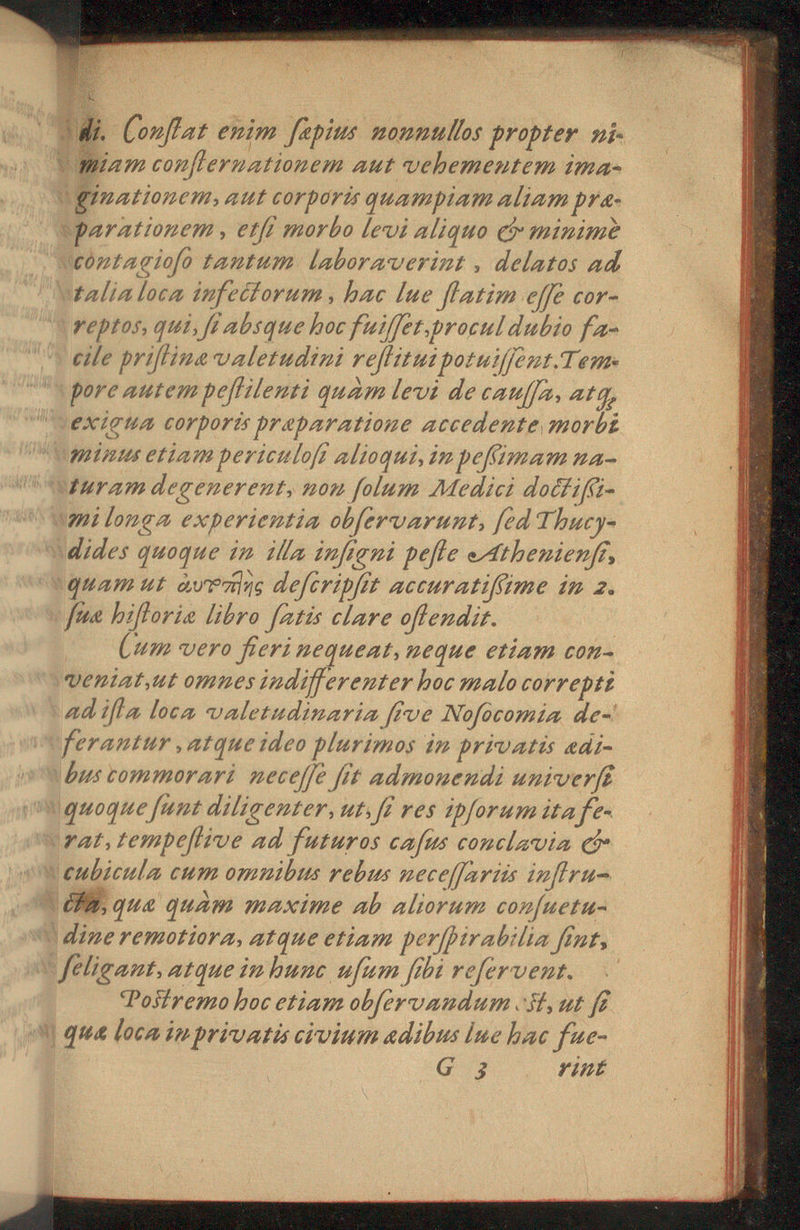 di. Conſtat enim ſæpius nonnullos propter ni-
miam conſternationem aut vehementem ima-
ginationem, aut corporis quampiam aliam præ-
parationem, etſi morbo levi aliquo & minimè
contagioſo tantum laboraverint, delatos ad
talia loca infectorum, hac lue ſtatim eſſe cor-
reptos, qui, ſi absque hoc fuiſſet, procul dubio fa-
cile priſtinæ valetudini reſtitui potuiſſent. Tem-
pore autem peſtilenti quàm levi de cauſſa, atq,
exigua corporis præparatione accedente morbi
minus etiam periculoſi alioqui, in peſsimam na-
turam degenerent, non ſolum Medici doctiſsi-
mi longa experientia obſervarunt, ſed Thucy-
dides quoque in illa inſigni peſte Athenienſi,
quam ut αυτοπ]ης deſcripſit accuratiſsime in 2.
ſuæ hiſtoriæ libro ſatis clare oſtendit.
Cum vero fieri nequeat, neque etiam con-
veniat, ut omnes indifferenter hoc malo correpti
ad iſta loca valetudinaria ſive Noſocomia de-
ferantur, atque ideo plurimos in privatis ædi-
bus commorari neceſſe ſit admonendi univerſi
quoque ſunt diligenter, ut, ſi res ipſorum ita fe-
rat, tempeſtive ad futuros caſus conclavia &
cubicula cum omnibus rebus neceſſariis inſtru-
cta, quæ quàm maxime ab aliorum conſuetu-
dine remotiora, atque etiam perſpirabilia ſint,
ſeligant, atque in hunc uſum ſibi reſervent.
Poſtremo hoc etiam obſervandum eſt, ut ſi
quæ loca in privatis civium ædibus lue hac fue-
G 3 rint